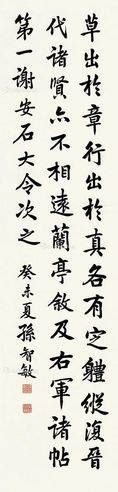 草出於章行出於真各有定體縱復晉
代諸賢亦不相遠蘭亭敘及右軍諸帖
第一謝安石大令次之
癸未夏孫智敏